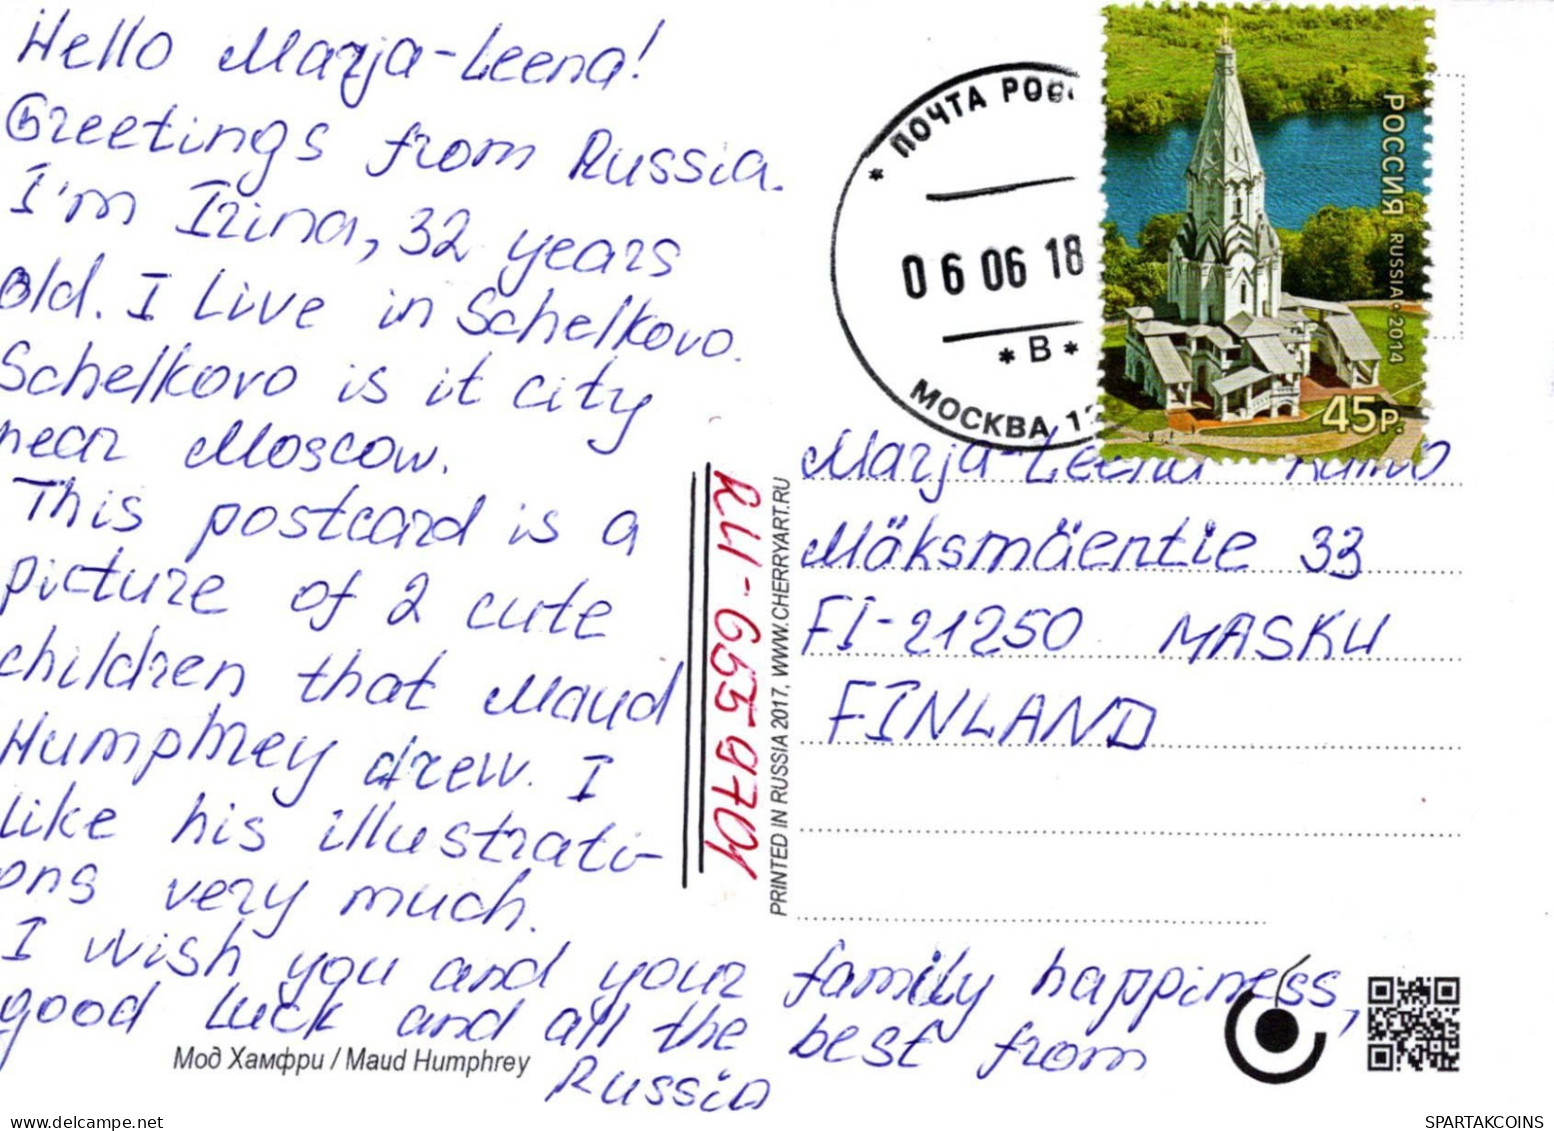 Hello Marja-Leena!
Greetings from Russia.
I'm Irina, 32 years
old. I live in Schelkovo.
Schelkovo is it city
near Moscow.
This postcard is a
picture of 2 cute
children that Maud
Humphrey drew. I
like his illustrati-
ons very much.
I wish you and your family happiness,
good luck and all the best from
Russia
Мод Хамфри / Maud Humphrey
RU-6559701
PRINTED IN RUSSIA 2017, WWW.CHERRYART.RU
* ПОЧТА РОС
06 06 18
* В *
МОСКВА 1
РОССИЯ RUSSIA • 2014
45р.
Marja-Leena
Mäksmäentie 33
FI-21250 MASKU
FINLAND
SPARTAKCOINS